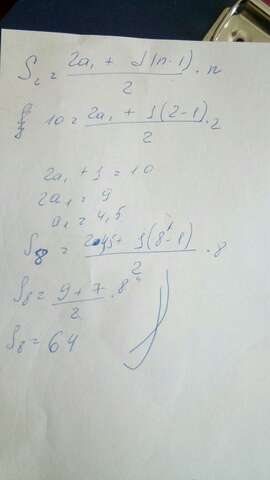 S₂ = (2a₁ + d(n-1))/2 · n
10 = (2a₁ + 1(2-1))/2 · 2
2a₁ + 1 = 10
2a₁ = 9
a₁ = 4,5
S₈ = (2·4,5 + 1(8-1))/2 · 8
S₈ = (9+7)/2 · 8⁴
S₈ = 64